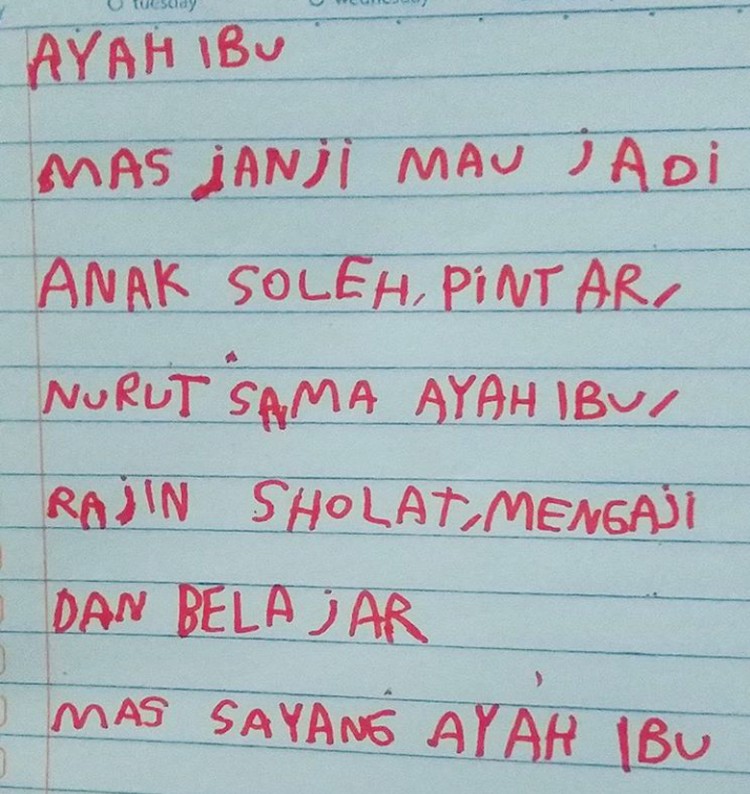 tuesday wednesday
AYAH IBU
MAS jANji MAU jADi
ANAK SOLEH, PiNTAR,
NURUT SAMA AYAH IBU,
RAjIN SHOLAT, MENGAji
DAN BELAjAR
MAS SAYANG AYAH IBU